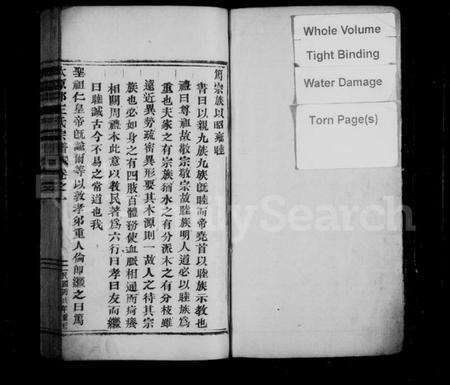 篤宗族以昭雍睦
書曰以親九族九族既睦而帝堯首以睦族示教也
禮曰尊祖故敬宗敬宗故睦族明人道必以睦族爲
重也夫家之有宗族猶水之有分派木之有分枝雖
遠近異勢疏密異形要其本源則一故人之待其宗
族也必如身之有四肢百體務使血脈相通而疴癢
相關周禮本此意以教民著爲六行曰孝曰友而繼
曰睦誠古今不易之常道也我
聖祖仁皇帝既諭爾等以敦孝弟重人倫即繼之曰篤
Whole Volume
Tight Binding
Water Damage
Torn Page(s)
FamilySearch